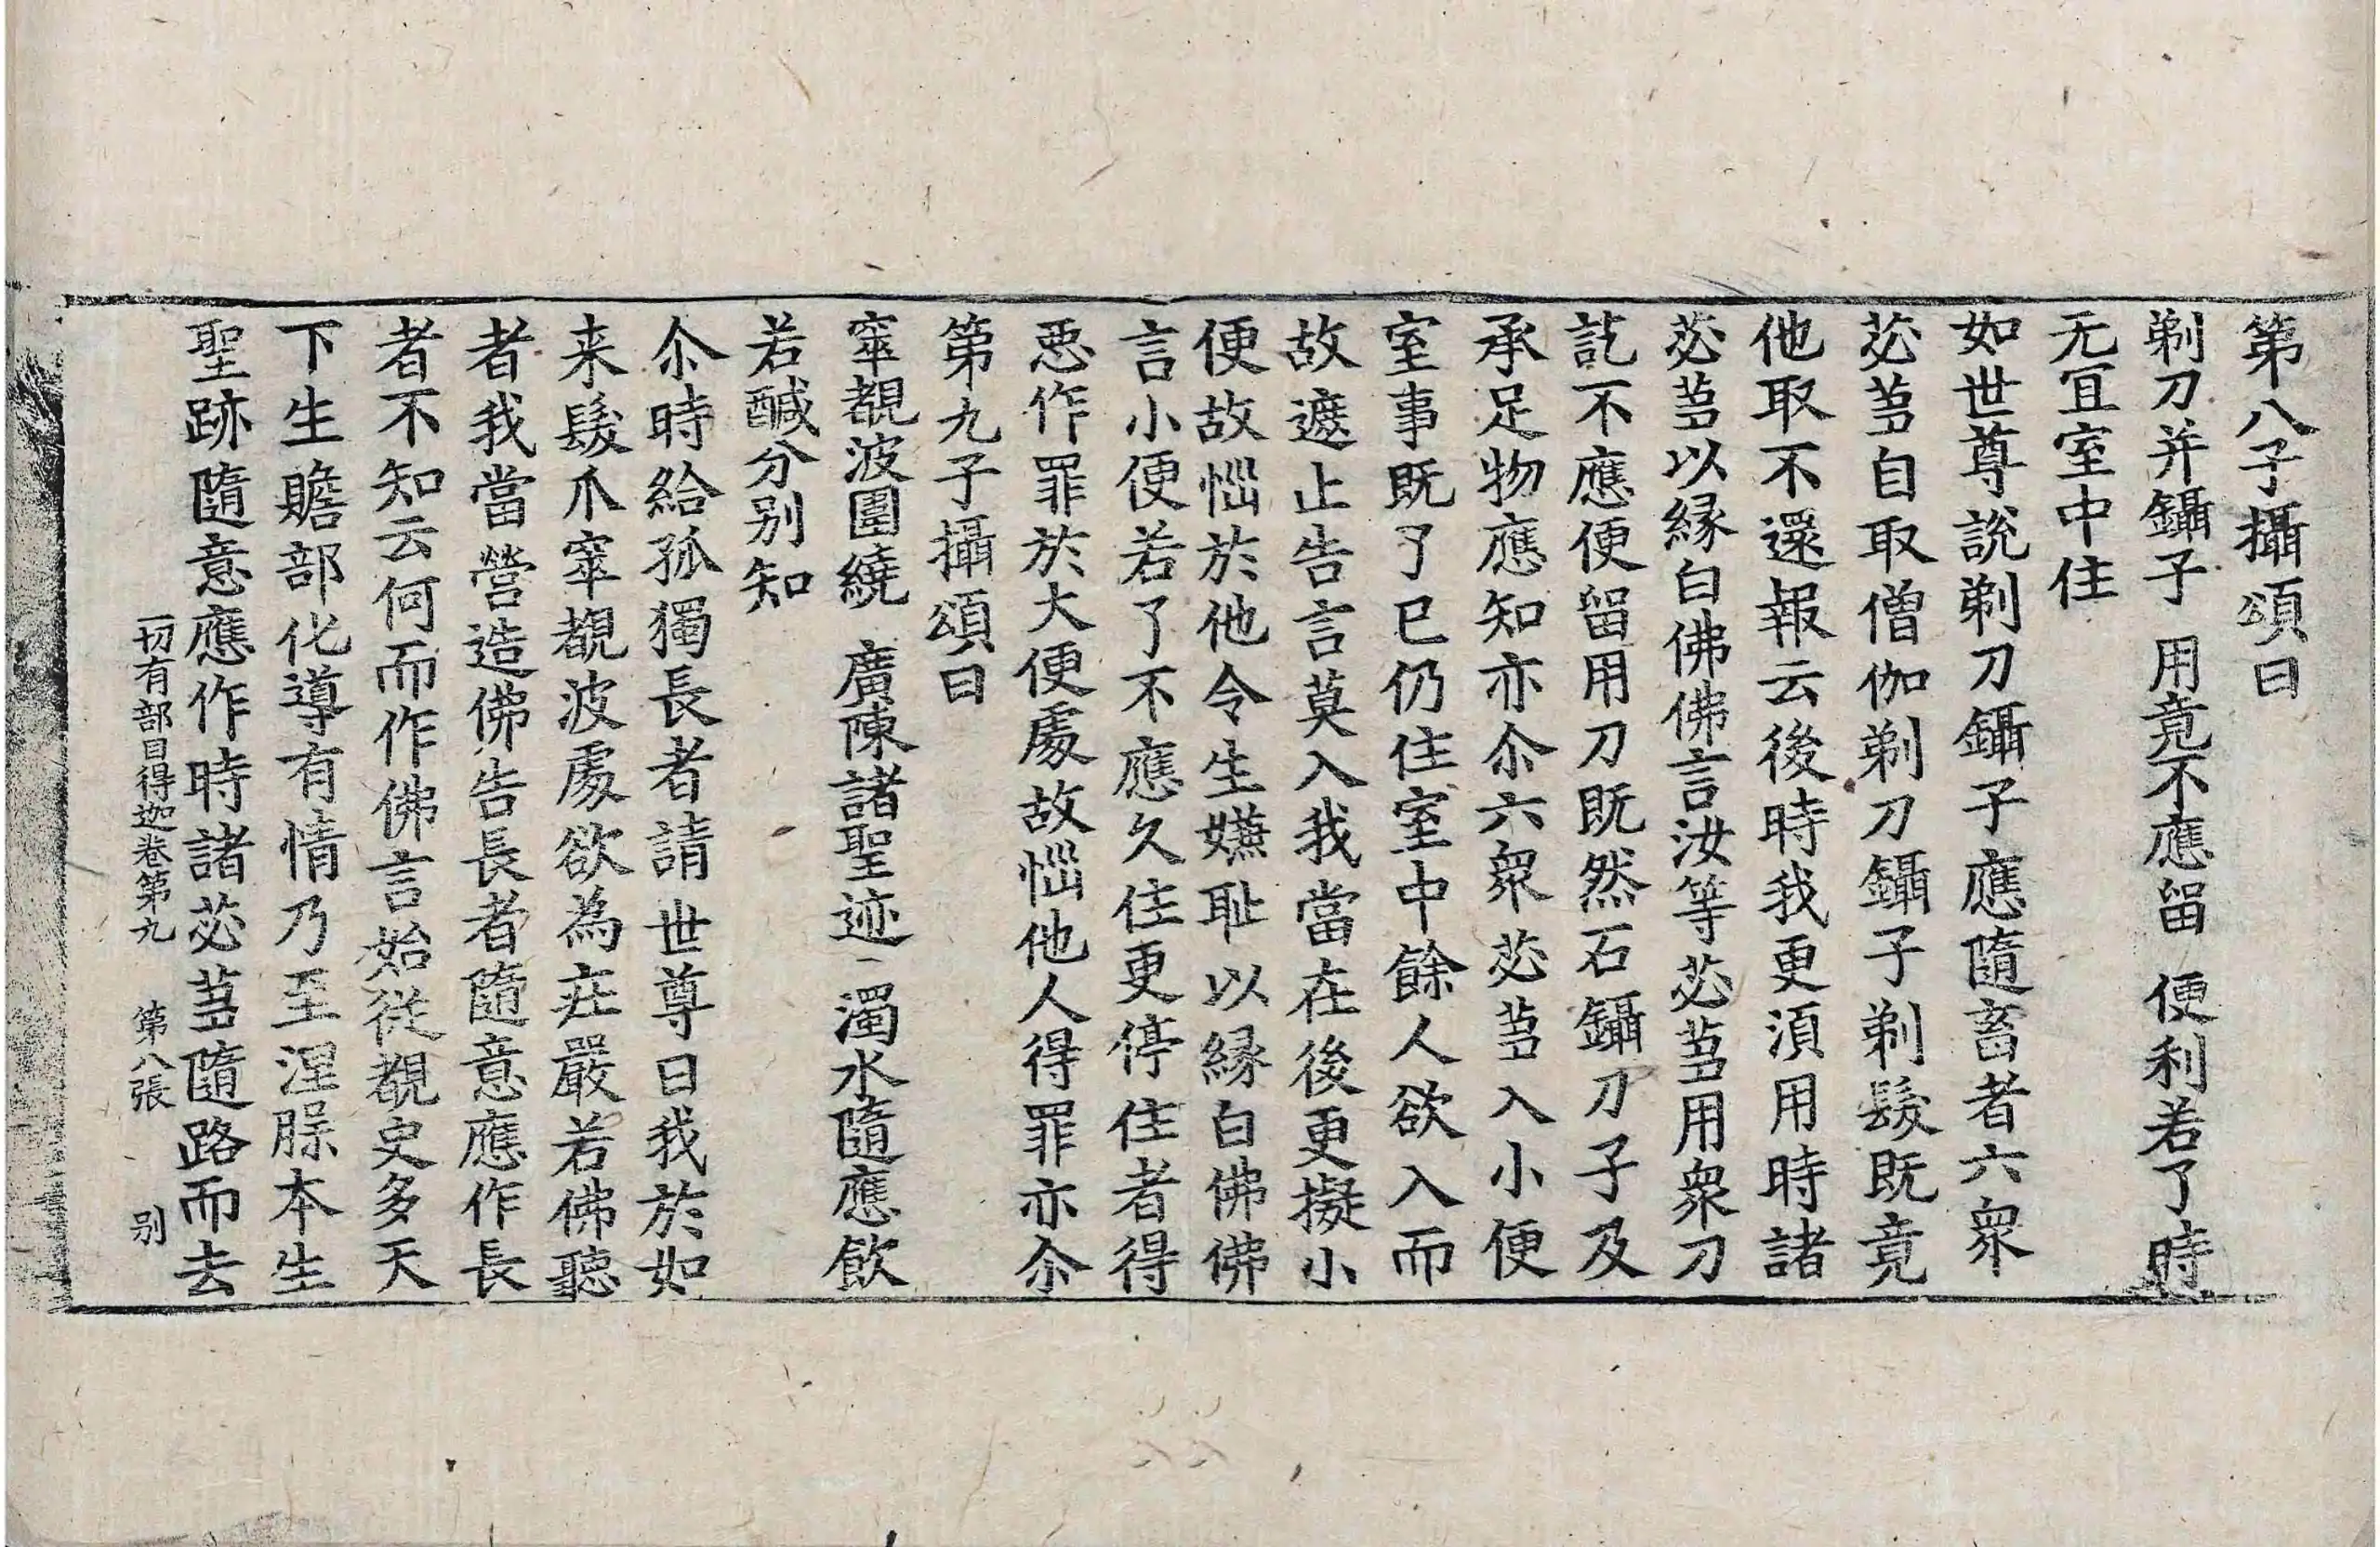 第八子攝頌曰
剃刀并鑷子　用竟不應留　便利若了時
无冝室中住
如世尊說剃刀鑷子應隨畜者六衆
苾芻自取僧伽剃刀鑷子剃髮既竟
他取不還報云後時我更湏用時諸
苾芻以縁白佛佛言汝等苾芻用衆刀
訖不應便留用刀既然石鑷刀子及
承足物應知亦尒六衆苾芻入小便
室事既了已仍住室中餘人欲入而
故遮止告言莫入我當在後更擬小
便故惱於他令生嫌耻以縁白佛佛
言小便若了不應久住更停住者得
惡作罪於大便處故惱他人得罪亦尒
第九子攝頌曰
窣覩波圍繞　廣陳諸聖迹　濁水隨應飲
若醎分别知
尒時給孤獨長者請世尊曰我於如
来髮爪窣覩波處欲為莊嚴若佛聽
者我當營造佛告長者隨意應作長
者不知云何而作佛言始從覩史多天
下生贍部化導有情乃至涅槃本生
聖跡隨意應作時諸苾芻隨路而去
一切有部目得迦卷第九　第八張　别